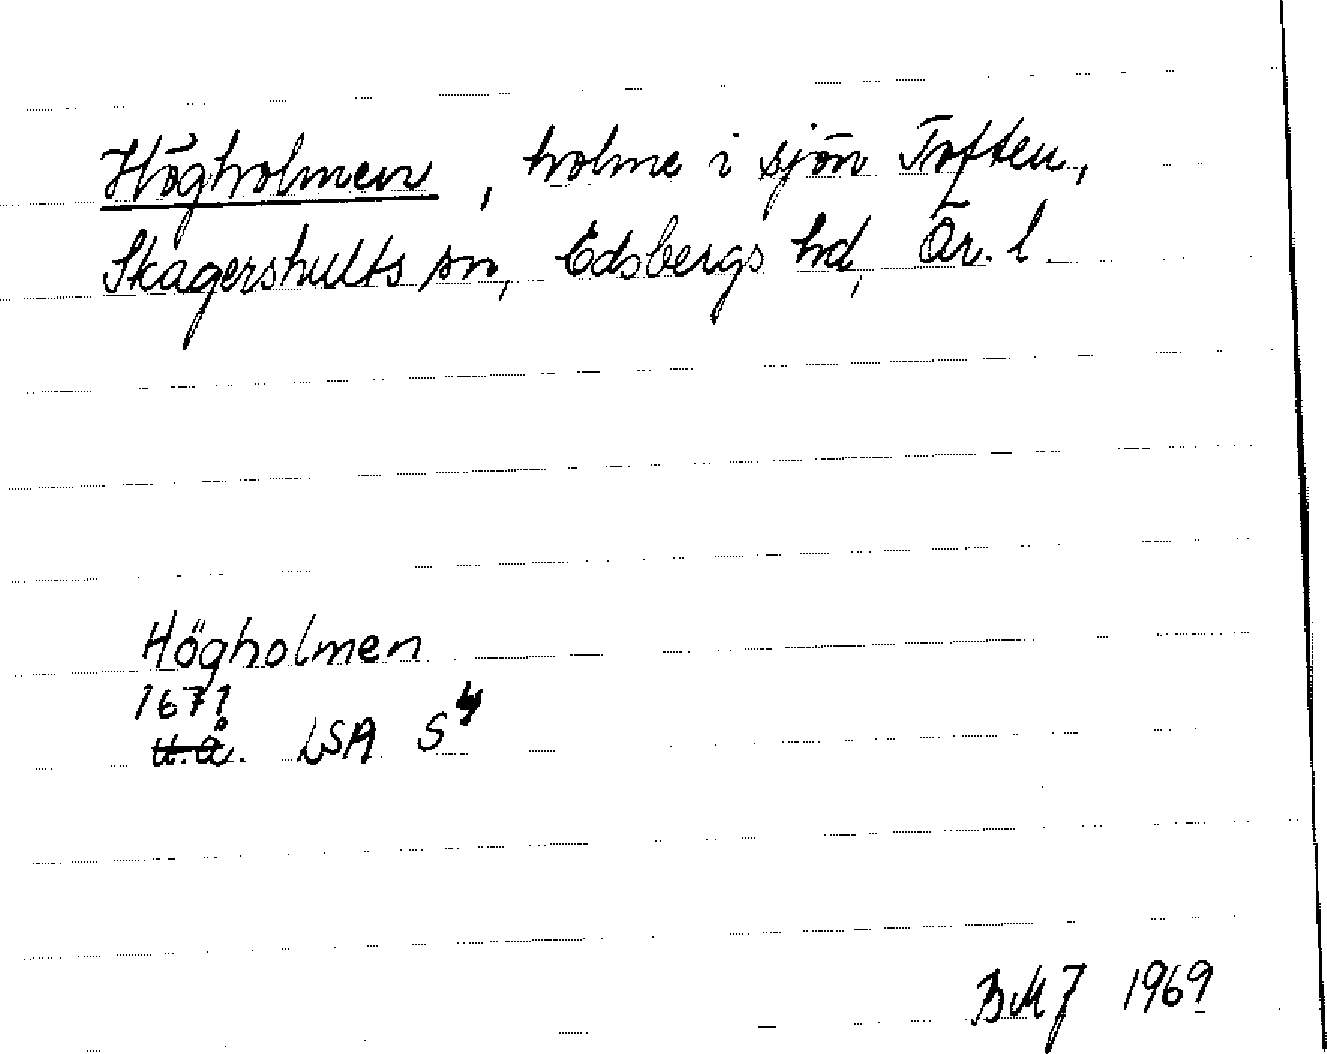 Högholmen, holme i sjön Toften,
Skagershults sn, Edsbergs hd, Ör. l.
Högholmen
1671
u.å. LSA S4
BMJ 1969